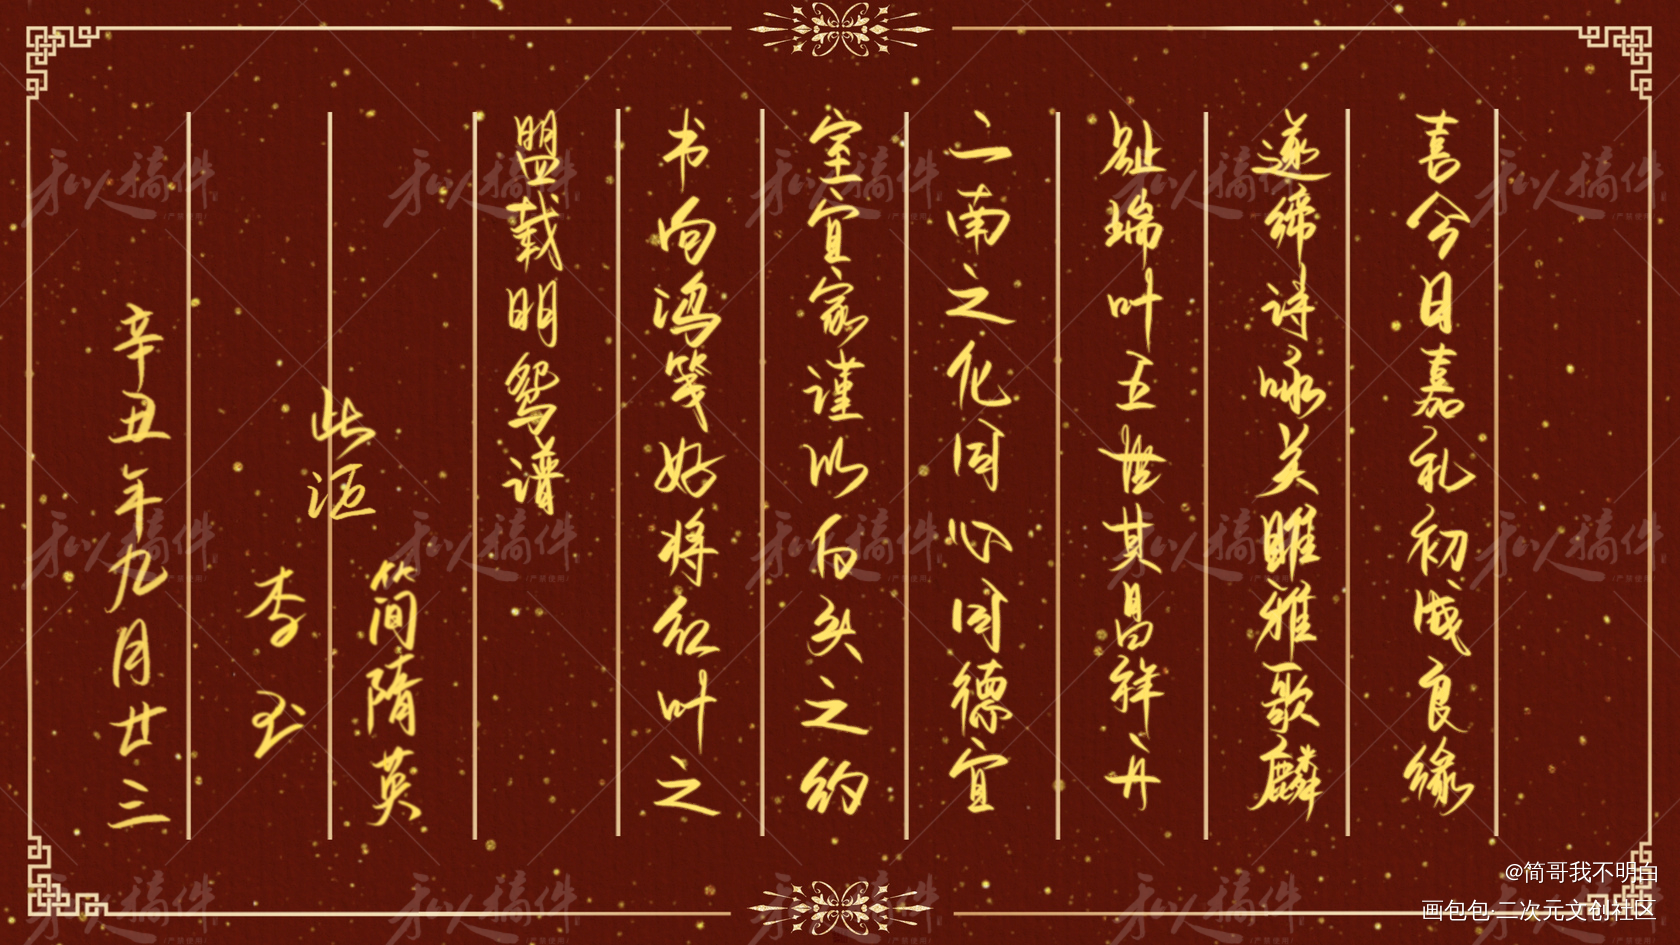 喜今日嘉礼初成良缘
遂缔诗咏关雎雅歌麟
趾瑞叶五世其昌祥开
二南之化同心同德宜
室宜家谨以白头之约
书向鸿笺好将红叶之
盟载明鸳谱
此证
简隋英
李玉
辛丑年九月廿三
私人稿件
严禁使用
@简哥我不明白
画包包·二次元文创社区